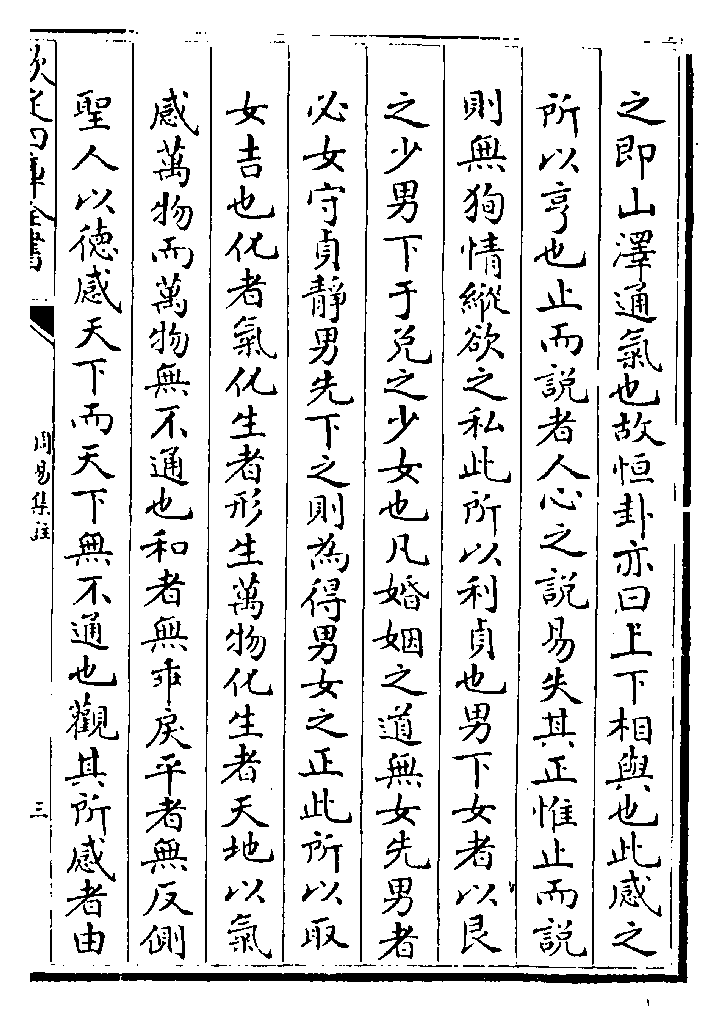 之即山澤通氣也故恒卦亦曰上下相與也此感之
所以亨也止而說者人心之說易失其正惟止而說
則無狥情縱欲之私此所以利貞也男下女者以艮
之少男下于兌之少女也凡婚姻之道無女先男者
必女守貞靜男先下之則為得男女之正此所以取
女吉也化者氣化生者形生萬物化生者天地以氣
感萬物而萬物無不通也和者無乖戾平者無反側
聖人以德感天下而天下無不通也觀其所感者由
欽定四庫全書
周易集註
三